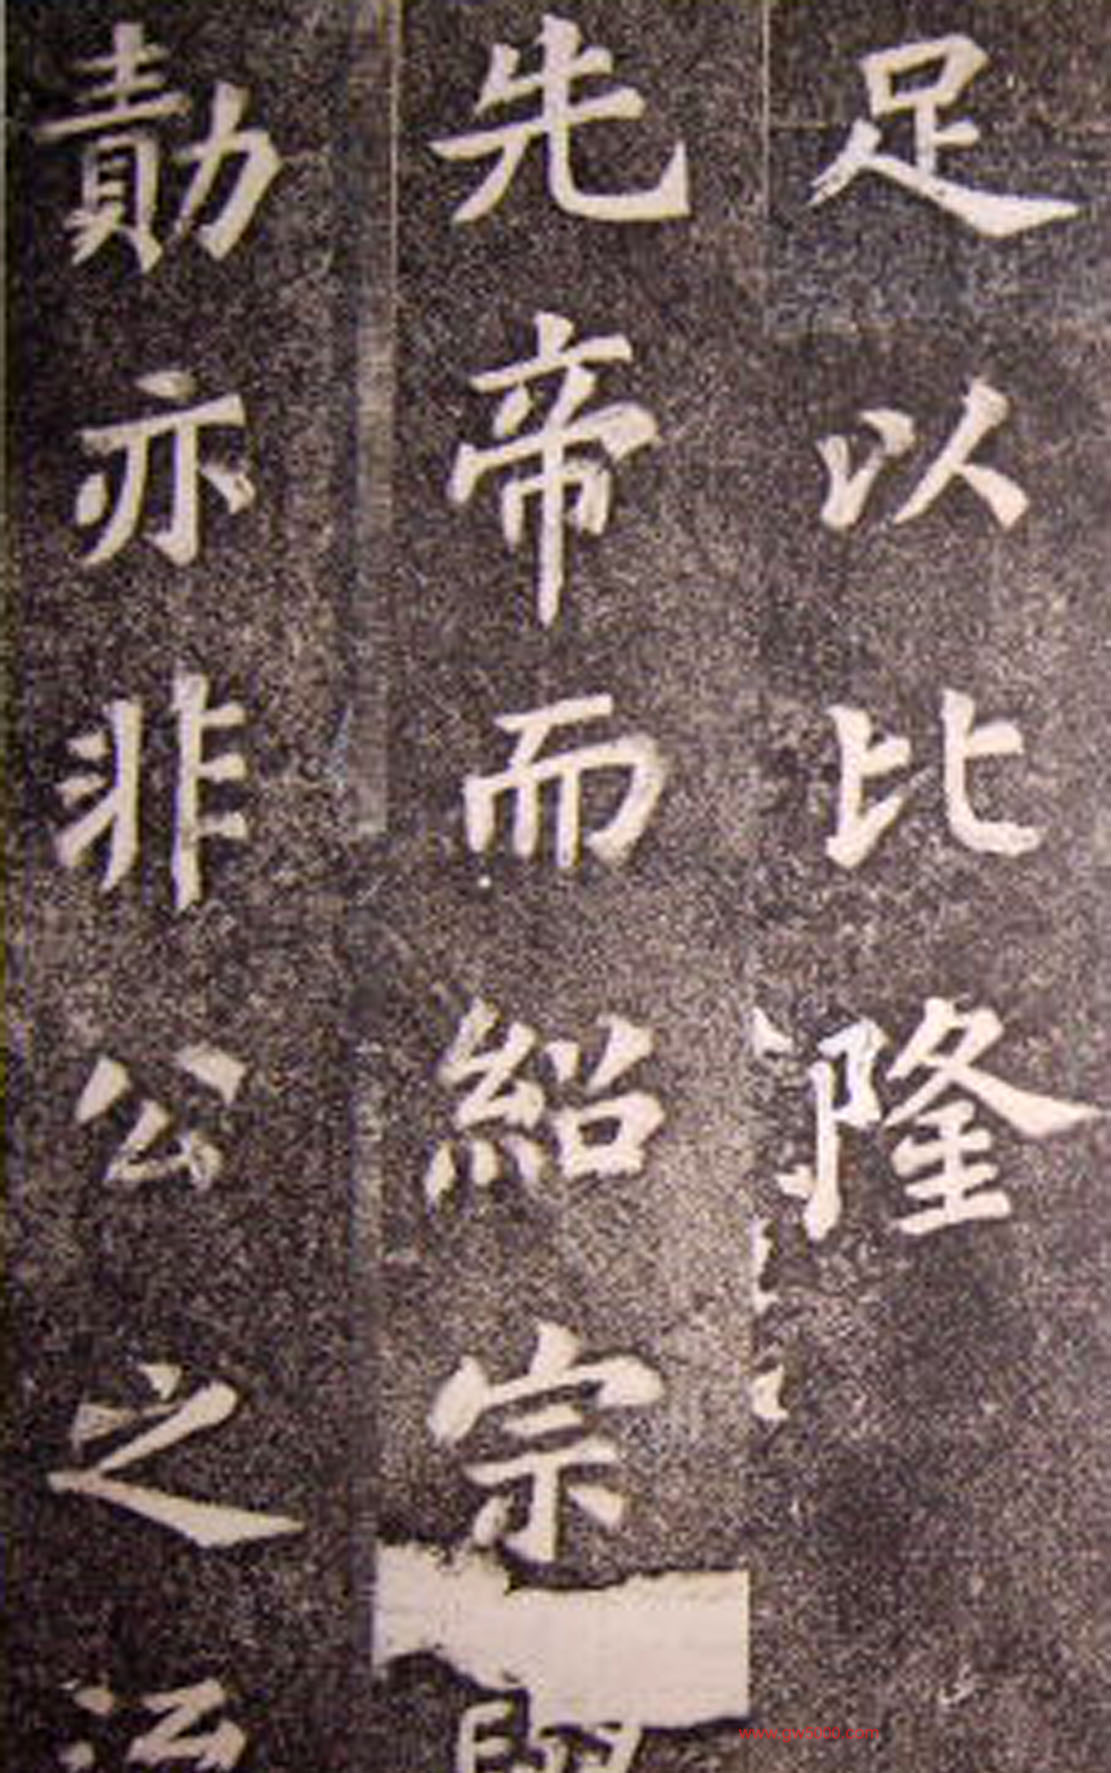 足以比隆
先帝而紹宗
勣亦非公之
www.gw5000.com